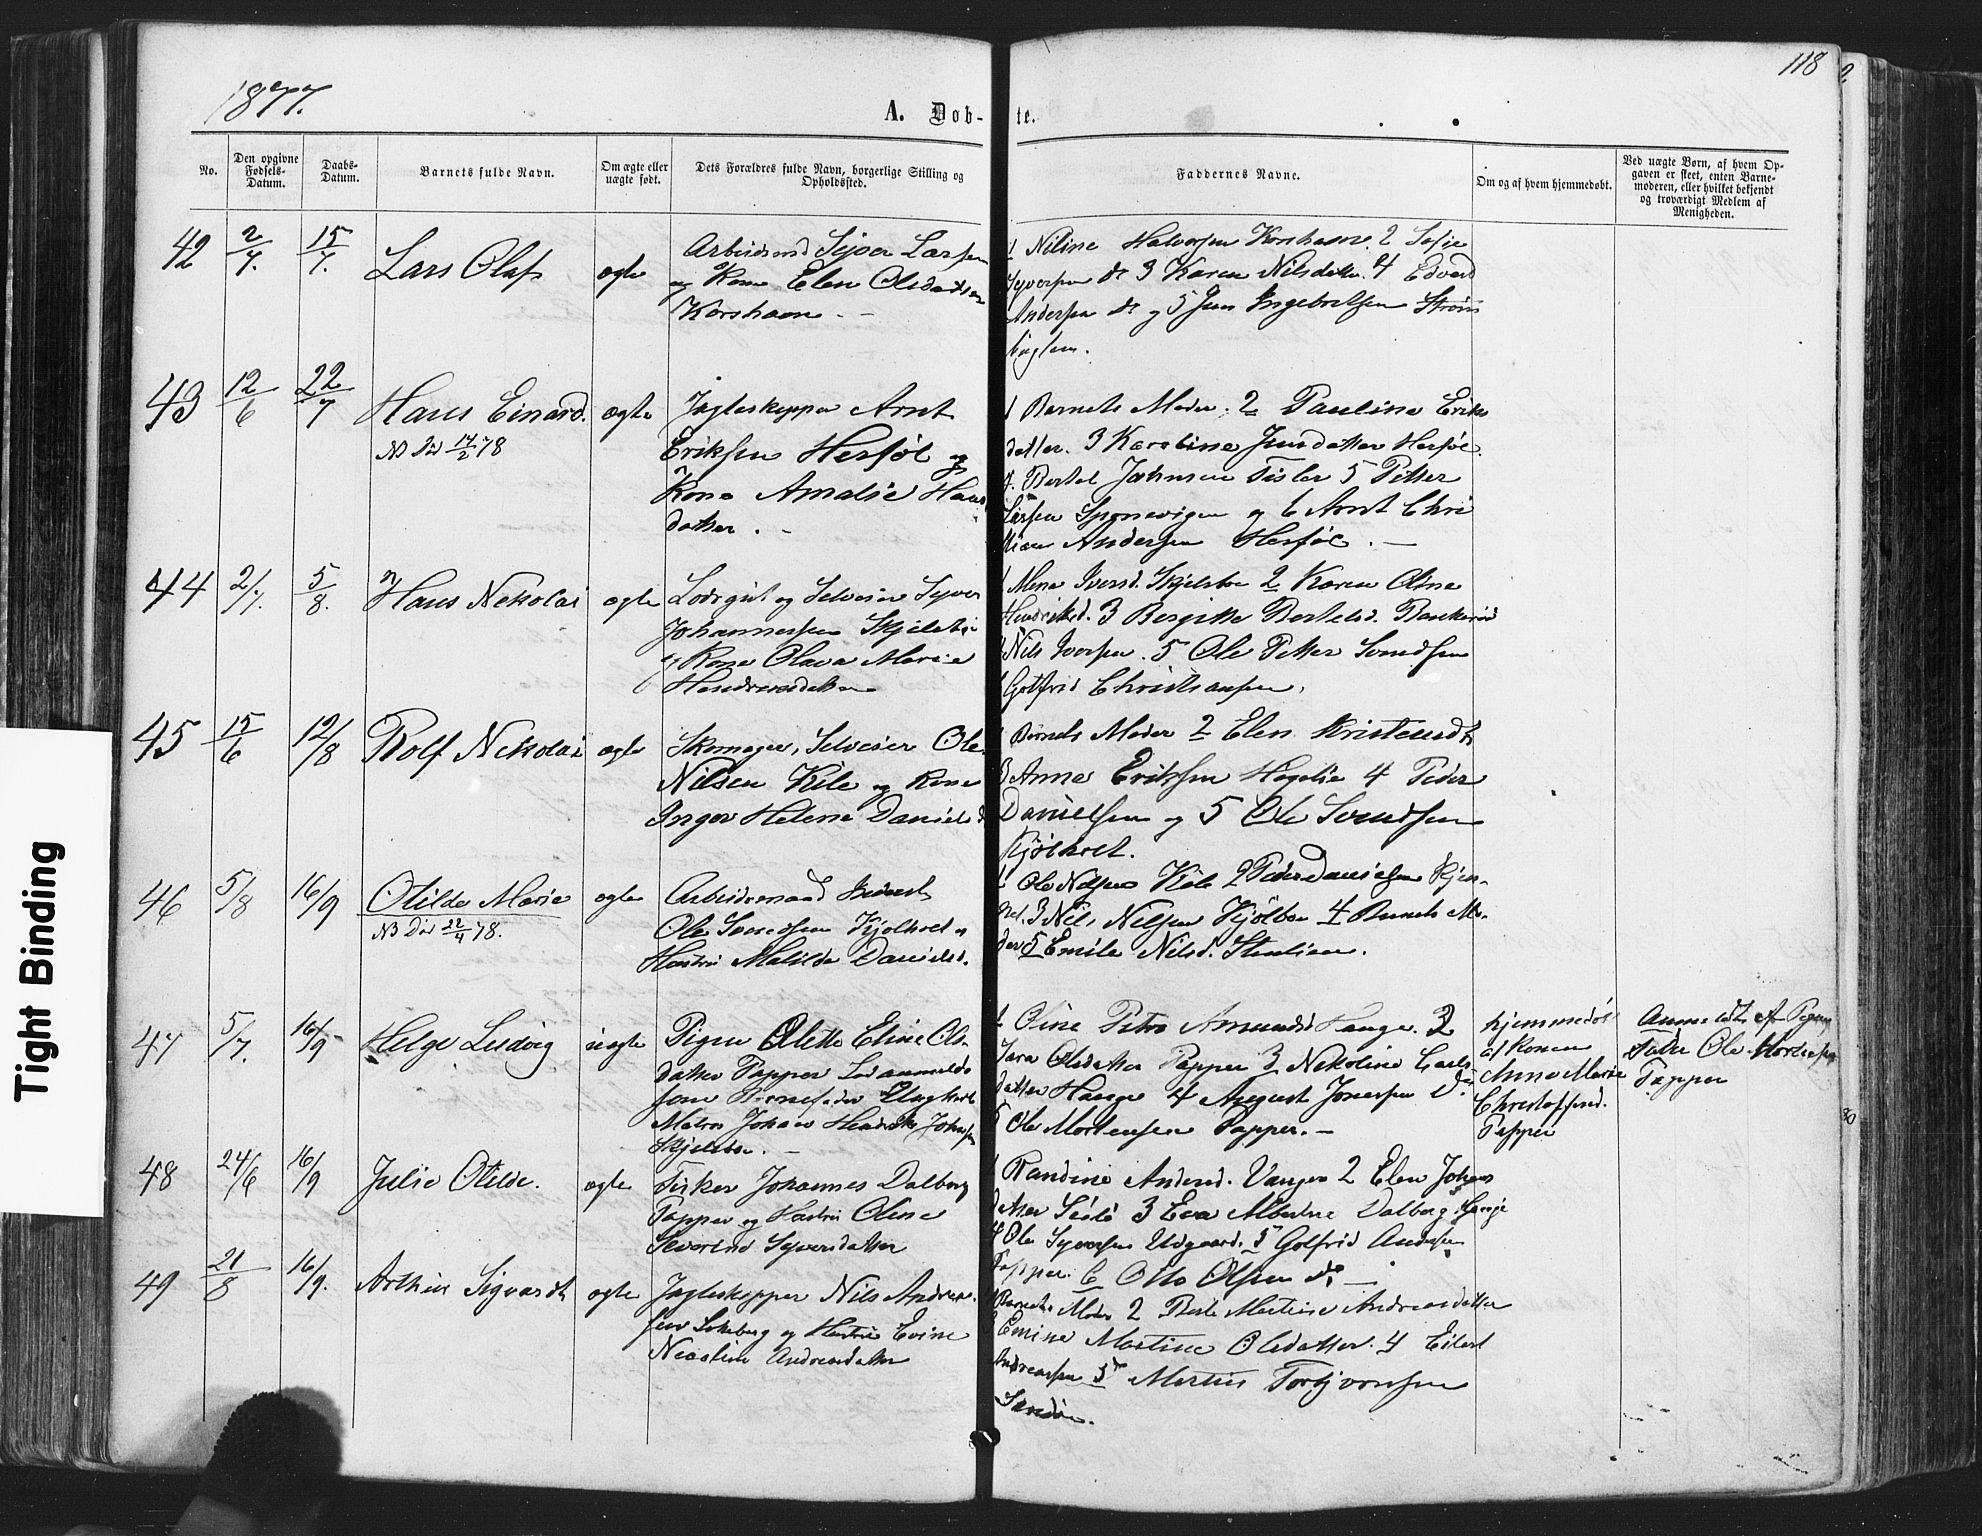 1877.
118
A. Døb-
te.
No.
Den opgivne Fødsels-Datum.
Daabs-Datum.
Barnets fulde Navn.
Om ægte eller uægte født.
Dets Forældres fulde Navn, borgerlige Stilling og Opholdssted.
Faddernes Navne.
Om og af hvem hjemmedøbt.
Ved uægte Børn, af hvem Op-
gaven er skeet, enten Barne-
moderen, eller hvilket bekjendt
og troværdigt Medlem af
Menigheden.
42 2/7. 15/7. Lars Olaf ægte
Arbeidsmd Syver Larsen
og Kone Elen Olsdatter
Korshavn -
1 Niline Halvorsen Korshavn. 2 Sofie
Syversen do 3 Karen Nilsdatter. 4 Edvard
Andersen do og 5 Jens Ingebretsen Strøm
43 12/6 22/7 Hans Einard. ægte
NB Død 17/2 78
Jagteskipper Arnt
Eriksen Herføl og
Kone Amalie Hans
datter. -
1 Barnets Moder. 2 Pauline Eriks
datter. 3 Karoline Jensdatter Herføl.
4. Bertel Johnsen Tisler 5 Petter
Larsen Sponevigen og 6 Arnt Chri
stian Andersen Herføl. -
44 2/7. 5/8. Hans Nekolai ægte
Lodsgut og Selveier Syver
Johannessen Skjelsbo
og Kone Olava Marie
Hendriksdatter
1 Mina Iversd. Skjelsbo 2 Karen Oline
Hendriksd. 3 Bergitte Bertelsd. Bankerød
4 Nils Iversen. 5 Ole Petter Svendsen
6 Gotfrid Christiansen.
45 15/6 12/8 Rolf Nekolai ægte
Skomager, Selveier Ole
Nilsen Kile og Kone
Inger Helene Danielsd
1 Barnets Moder 2 Elen Kristensdt
3 Anne Eriksen Hegelie 4 Peder
Danielsen og 5 Ole Svendsen
Kjølholt.
46 5/8 16/9 Otilde Marie ægte
NB Død 22/4 78.
Arbeidsmand Inderst
Ole Svendsen Kjølholt og
Hustru Matilde Danielsd.
1 Ole Nilsen Kile 2 Peder Danielsen Kjøl-
holt. 3 Nils Nilsen Kjølbo 4 Barnets Mo-
der 5 Emile Nilsd. Stenlien.
47 5/7. 16/9 Helge Ludvig uægte
Pigen Olette Eline Ols-
datter Papper
som Barnefader Ungkarl
Matros Johan Hendrik Johansen
Skjelsbo. -
1 Oline Petra Amundsd Hauge. 2
Sara Olsdatter Papper 3 Nekoline Carls
datter Hauge 4 August Jonassen do
5 Ole Mortensen Papper. -
hjemmedøbt
af Konen
Anne Marie
Christoffersd.
Papper
Anmeldt af Pigens
Fader Ole Mortensen
Papper
48 24/6 16/9 Julie Otilde. ægte
Fisker Johannes Dalberg
Papper og Hustru Oline
Severine Syversdatter
1 Randine Andersd. Vanger 2 Elen Johans
datter 3 Eva Albertine Dalberg Hauge
4 Ole Syversen Utgaard. 5 Gotfrid Andersen
Papper. 6 Otto Olsen do. -
49 21/8 16/9. Arthur Sigvardt ægte
Jagteskipper Nils Andrea-
sen Lokeberg og Hustru Evine
Neostine Andreasdatter
1 Barnets Moder 2 Berte Martine Andreasdatter
3 Emine Martine Olsdatter. 4 Eilert
Andreassen 5 do Martin Torgjvorsen
Sandøen.
Tight Binding